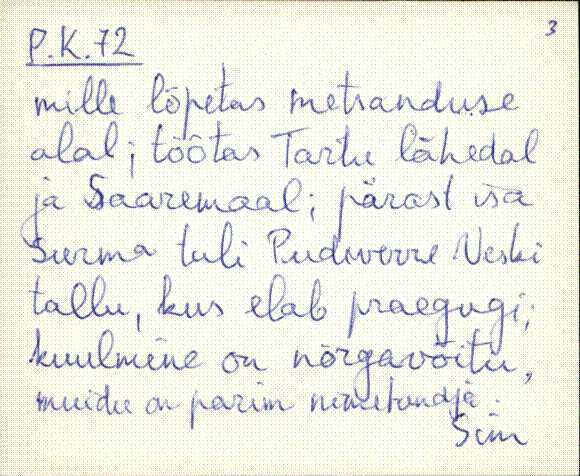 3
P.K.72
mille lõpetas metsanduse
alal; töötas Tartu lähedal
ja Saaremaal; pärast isa
surma tuli Pudiverre Veski
tallu, kus elab praegugi;
kuulmine on nõrgavõitu,
muidu on parim nimetundja.
Siin